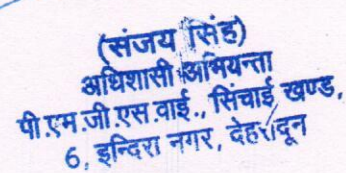 (संजय सिंह)
अधिशासी अभियन्ता
पी.एम.जी.एस.वाई., सिंचाई खण्ड,
6, इन्दिरा नगर, देहरादून